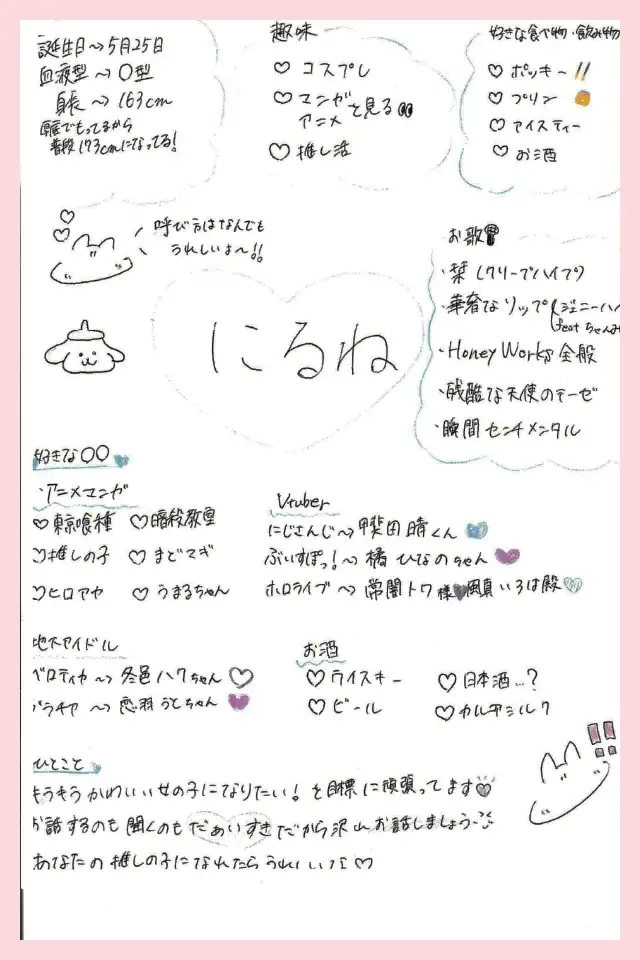 誕生日～5月25日
血液型～O型
身長～163cm
厚底でもってるから
普段173cmになってる!
趣味
♡ コスプレ
♡ マンガ
アニメ を見る
♡ 推し活
好きな食べ物・飲み物
♡ ポッキー
♡ プリン
♡ アイスティー
♡ お酒
呼び方はなんでも
うれしいよ～!!
にるね
お歌
・栞(クリープハイプ)
・華奢なリップ(ジェニーハイ
feat ちゃんみ
・HoneyWorks 全般
・残酷な天使のテーゼ
・瞬間センチメンタル
好きな○○
・アニメマンガ
♡東京喰種 ♡暗殺教室
♡推しの子 ♡まどマギ
♡ヒロアカ ♡うまるちゃん
Vtuber
にじさんじ～甲斐田晴くん
ぶいすぽっ!～橘ひなのちゃん
ホロライブ～常闇トワ様 風真いろは殿
地下アイドル
ベロティカ～冬邑ハクちゃん♡
パラチャ～恋羽うとちゃん
お酒
♡ウイスキー ♡日本酒…?
♡ビール ♡カルアミルク
ひとこと
もうもうかわいい女の子になりたい!を目標に頑張ってます
お話するのも聞くのもだぁいすきだから沢山お話しましょう
あなたの推しの子になれたらうれしいな♡